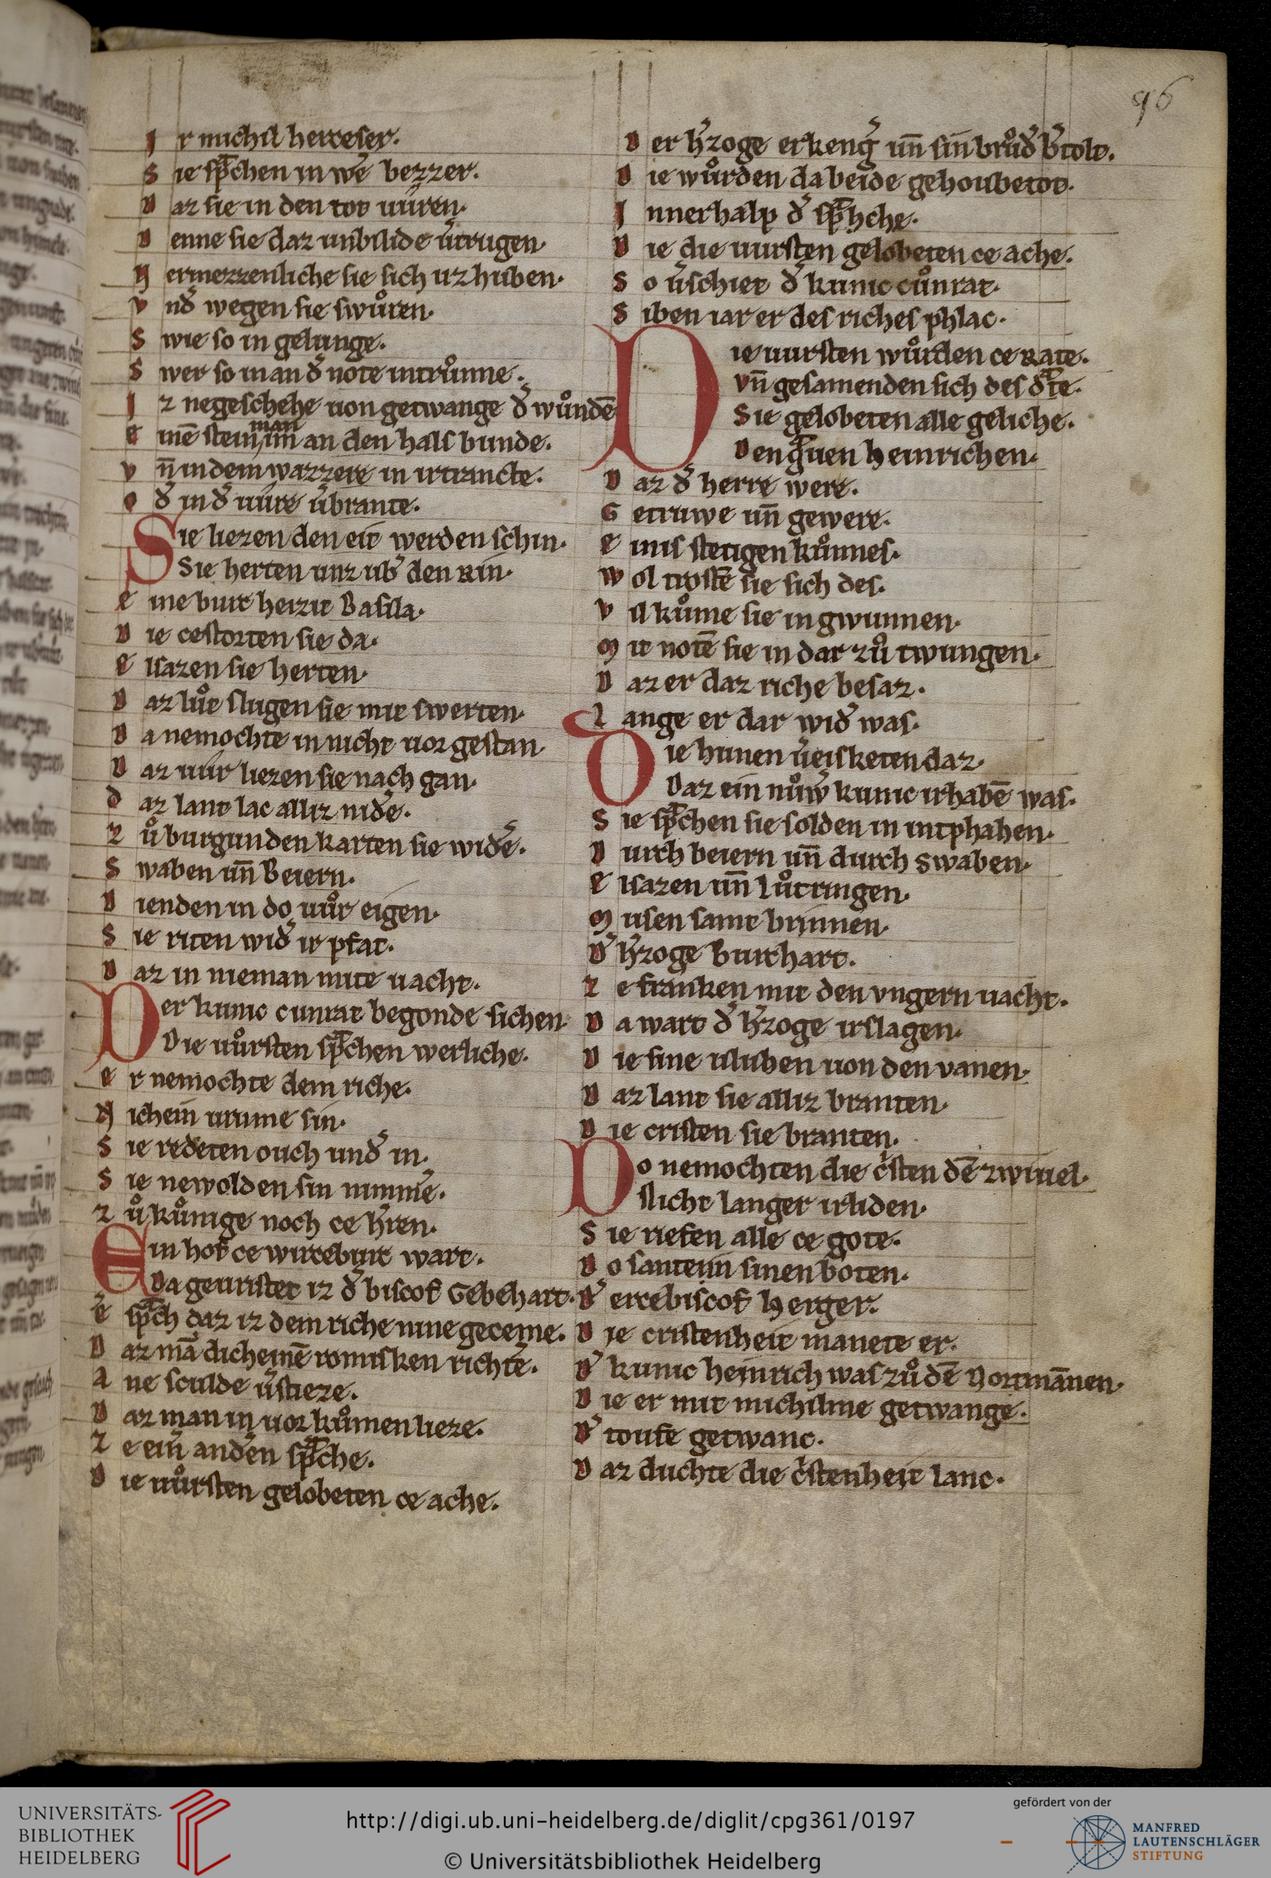 96
I r michil herceser.
S ie sp̄chen in we᷑ bezzer.
D az sie in den tot vůren.
D enne sie daz unbilide v᷑trugen.
N ermezzenliche sie sich uz huben.
v nd᷑ wegen sie swůren.
S wie so in gelunge.
S wer so in an d᷑ note intrůnne.
I z negeschehe uon getwange d᷑ wůndē
e inē stein man im an den hals bunde.
v n̄ in dem wazzere in irtrancte.
o d᷑ in d᷑ uůre v᷑brante.
Sie liezen den eit werden schin.
Sie herten unz ub᷑ den Rin.
e ine burc heizit Basila.
D ie cestorten sie da.
e lsazen sie herten.
D az lůt slugen sie mit swerten.
D a nemochte in nicht uor gestan.
D az uůr liezen sie nach gan.
d az lant lac alliz nid᷑e.
z ů burgunden karten sie wid᷑e.
S waben un̄ Beiern.
D ienden in do uůr eigen.
S ie riten wid᷑ ir pfat.
D az in nieman mite uacht.
Der kunic cunrat begonde sichen.
Die uůrsten sp̄chen werliche.
e r nemochte dem riche.
N ichein urume sin.
S ie redeten ouch und᷑ in.
S ie newolden sin nimm᷑e.
z ů kůnige noch ce h᷑ren.
Ein hof ce wirceburc wart.
Da geuristet iz d᷑ biscof Gebehart.
e᷑ sp̄ch daz iz dem riche nine geceme.
D az mā dicheinē romisken richt᷑e.
A ne sculde v᷑stieze.
D az man in uor kůmen lieze.
z e ein᷑ anden sp̄che.
D ie uůrsten gelobeten ce ache.
D er h᷑zoge erkeng᷑ un̄ sin brůd᷑ b᷑tolt.
D ie wůrden da beide gehoubetot.
I nnerhalp d᷑ sp̄hche.
D ie die uursten gelobeten ce ache.
S o v᷑schiet d᷑ kunic cůnrat.
S iben iar er des riches phlac.
Die uursten wůrden ce Rate.
vn̄ gesamenden sich des drate.
Sie gelobeten alle geliche.
Den grauen heinrichen.
D az d᷑ herre were.
G etruwe un̄ gewere.
e inis stetigen kůnnes.
w ol trostē sie sich des.
v il kůme sie in gwunnen.
M it notē sie in dar zů twungen.
D az er daz riche besaz.
l ange er dar wid᷑ was.
Die hunen v᷑eisketen daz.
Daz ein nůw᷑ kunic irhabē was.
S ie sp̄chen sie solden in intphahen.
D urch beiern un̄ durch swaben.
e lsazen un̄ lůtringen.
M usen samt brinnen.
D᷑ h᷑zoge burchart.
z e franken mit den vngern uacht.
D a wart d᷑ h᷑zoge irslagen.
D ie sine uluhen uon den vanen.
D az lant sie alliz branten.
D ie cristen sie branten.
Do nemochten die c᷑sten dē zwiuel.
slicht langer irliden.
S ie riefen alle ce gote.
D o sante in sinen boten.
D᷑ ercebiscof herger.
D ie cristenheit manete er.
D᷑ kunic heinrich was zů dē Nortmānnen.
D ie er mit michilme getwange.
D᷑ toufe getwanc.
D az duchte die c᷑stenheit lanc.
UNIVERSITÄTS-
BIBLIOTHEK
HEIDELBERG
http://digi.ub.uni-heidelberg.de/diglit/cpg361/0197
© Universitätsbibliothek Heidelberg
gefördert von der
MANFRED
LAUTENSCHLÄGER
STIFTUNG